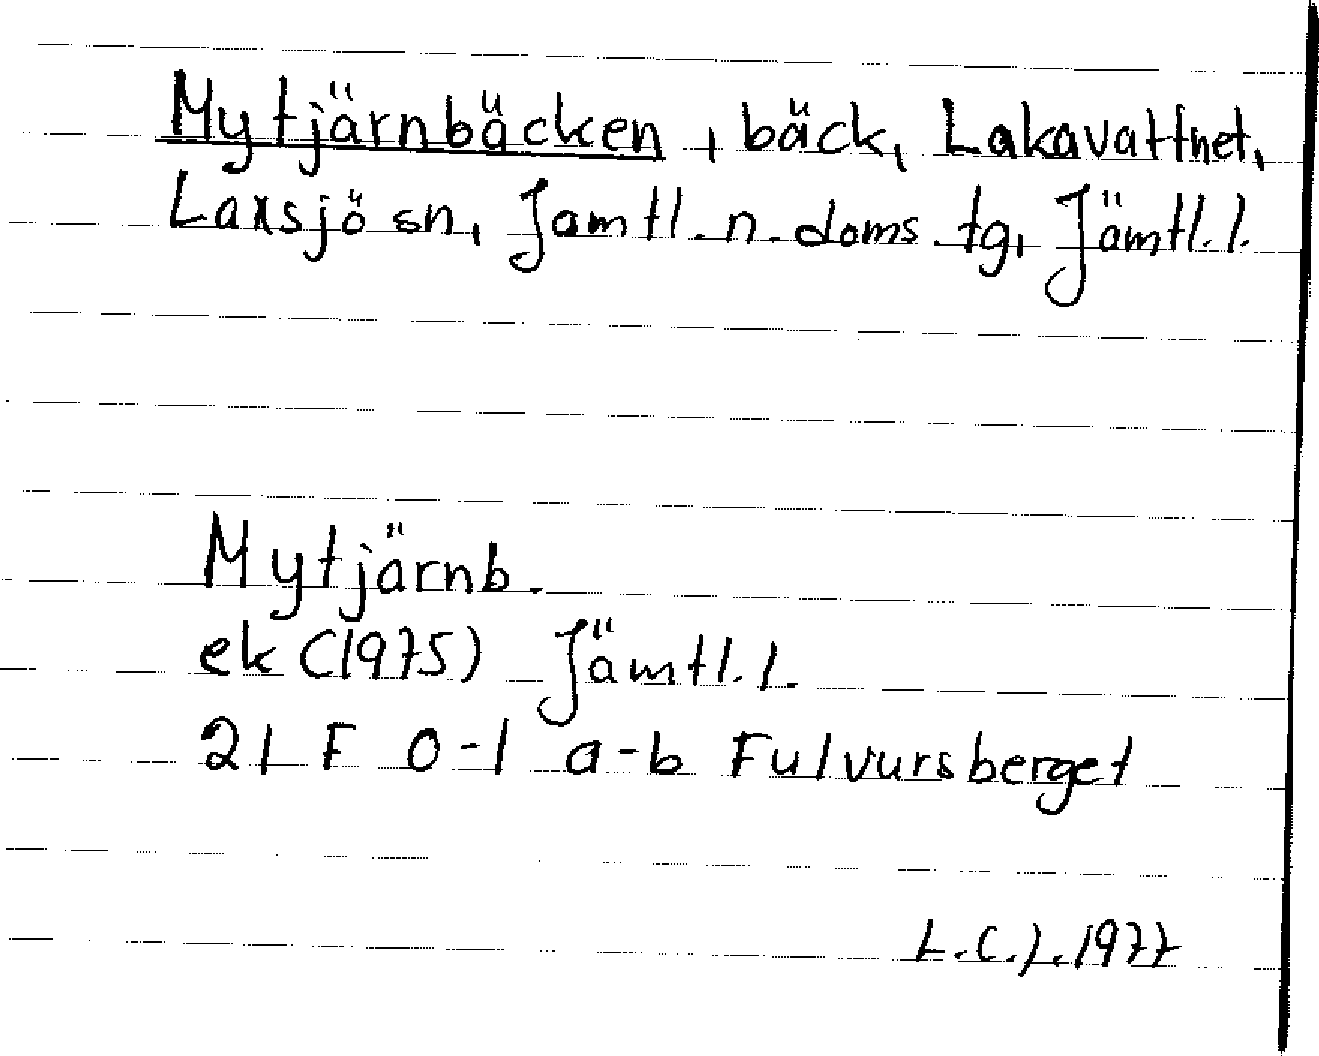 Mytjärnbäcken, bäck, Lakavattnet,
Laxsjö sn, Jämtl. n. doms. tg, Jämtl. l.
Mytjärnb.
ek (1975) Jämtl. l.
21 F 0-1 a-b Fulvursberget
L.C.J. 1977